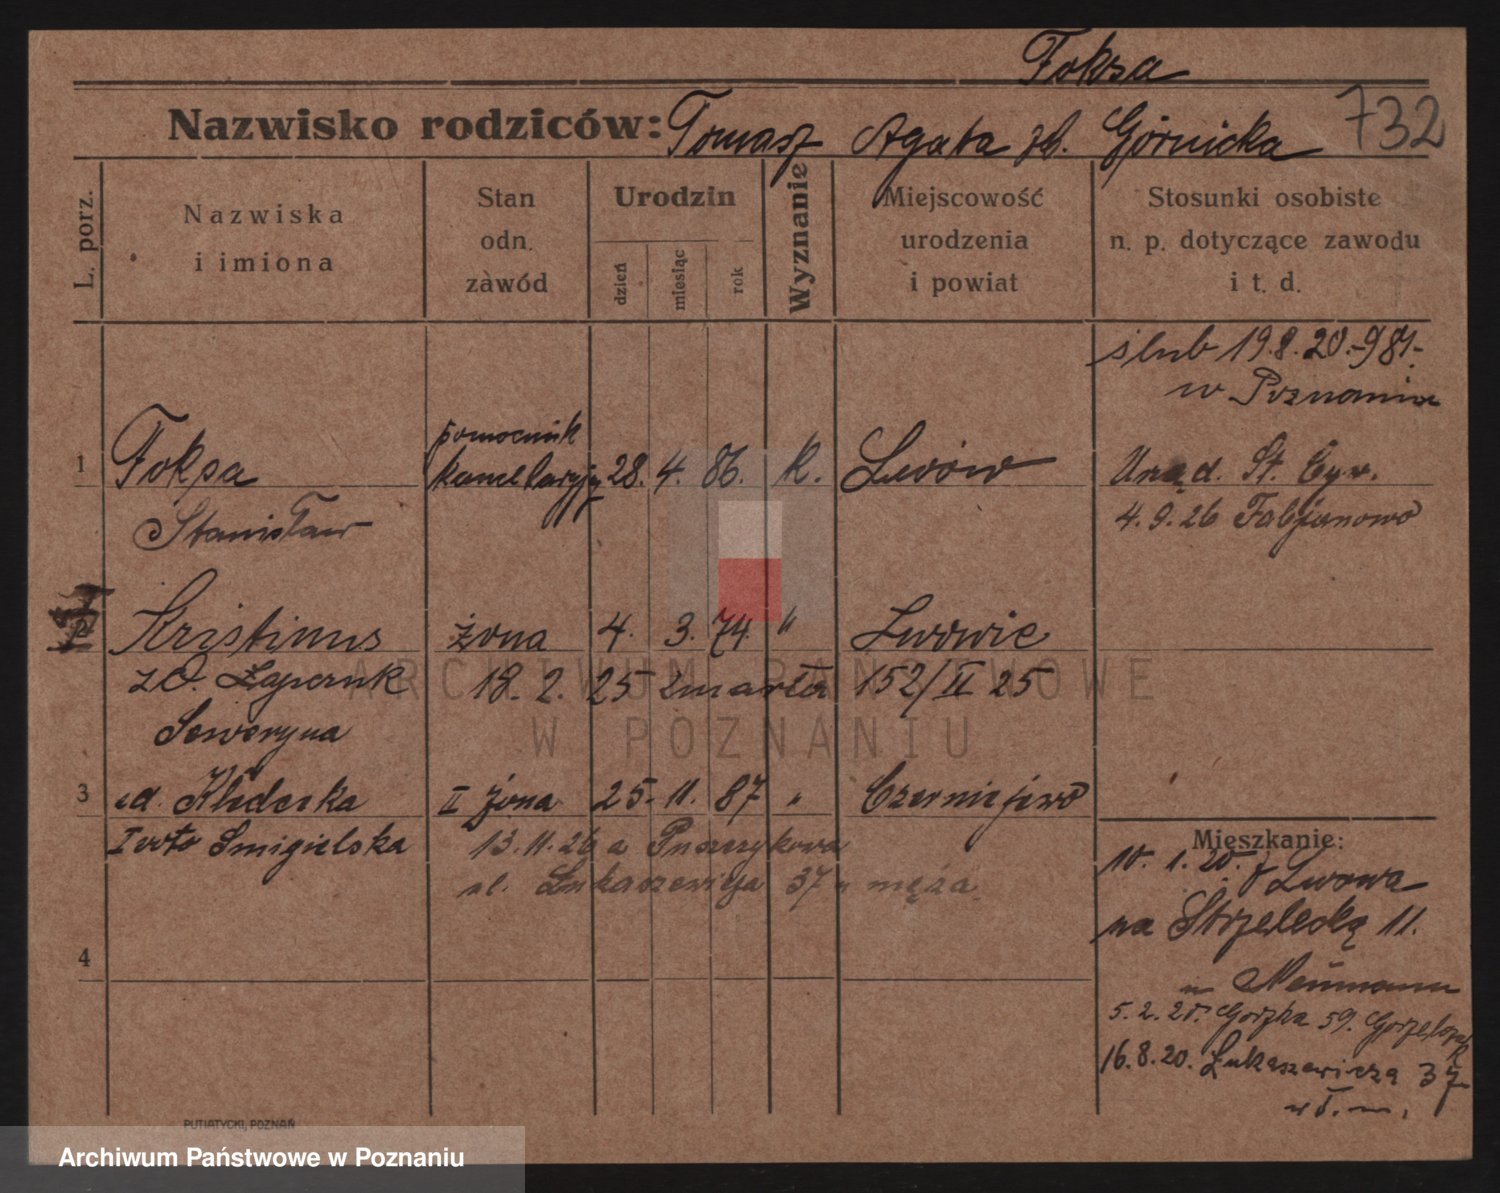 Foksa
Nazwisko rodziców: Tomasz Agata zd. Górnicka 732
L. porz.
Nazwiska
i imiona
Stan
odn.
zawód
Urodzin
dzień
miesiąc
rok
Wyznanie
Miejscowość
urodzenia
i powiat
Stosunki osobiste
n. p. dotyczące zawodu
i t. d.
ślub 19.8.20.-981-
w Poznaniu
1 Foksa pomocnik kancelaryjny 28. 4. 86. k. Lwów Urząd. St. Cyw.
Stanisław 4.9.26 Fabjanowo
2 Kristinus żona 4. 3. 74. " Lwowie
18. 2. 25 zmarła 152/II 25
Seweryna
3 Kledecka II żona 25. 11. 87 " Czerniejewo
Ivoto Smigielska 13.11.26 a Puszczykowa
ul. Łukaszewicza 37 u męża
4
Mieszkanie:
10. 1. 20. z Lwowa
na Strzelecką 11.
u Neumann
5. 2. 20. Gorzka 59.
16.8.20. Łukaszewicza 37
PUTIATYCKI, POZNAŃ
ARCHIWUM PAŃSTWOWE
W POZNANIU
Archiwum Państwowe w Poznaniu